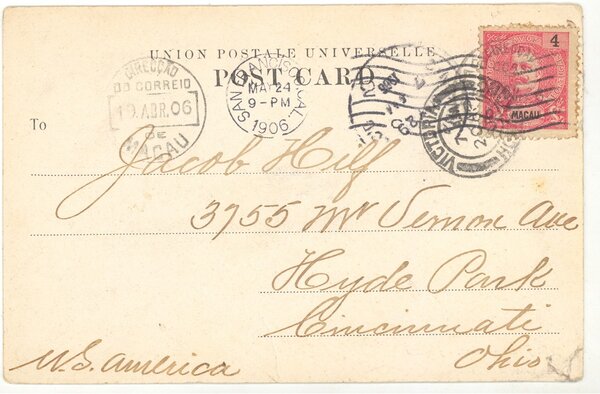 UNION POSTALE UNIVERSELLE
POST CARD
4
MACAU
DIRECÇÃO
DO CORREIO
19.ABR.06
DE
MACAU
SAN FRANCISCO, CAL.
MAY 24
9-PM
1906
VICTORIA
To
Jacob Hilf
3755 Mt Vernon Ave
Hyde Park
Cincinnati
Ohio
U.S. america